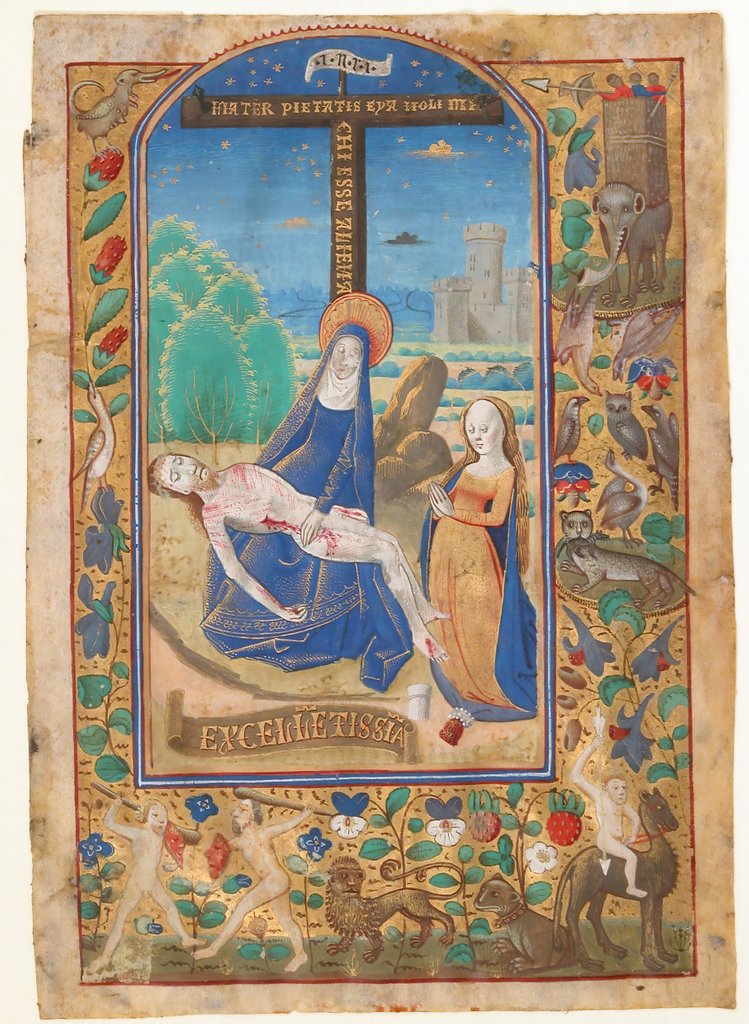 I·N·R·I·
MATER PIETATIS EYA NOLI MI
CHI ESSE AMENA
EXCELLETISSIA